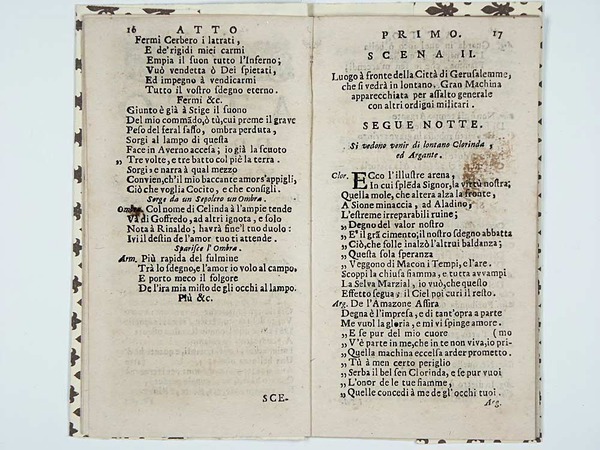 16 ATTO
Fermi Cerbero i latrati,
E de'rigidi miei carmi
Empia il suon tutto l'Inferno;
Vuò vendetta ò Dei spietati,
Ed impegno à vendicarmi
Tutto il vostro sdegno eterno.
Fermi &c.
Giunto è già à Stige il suono
Del mio commãdo, ò tù, cui preme il grave
Peso del feral sasso, ombra perduta,
Sorgi al lampo di questa
Face in Averno accesa; io già la scuoto
„ Tre volte, e tre batto col piè la terra.
Sorgi, e narra à qual mezzo
Convien, ch'il mio baccante amor s'appigli,
Ciò che voglia Cocito, e che consigli.
Sorge da un Sepolcro un'Ombra.
Ombra. Col nome di Celinda à l'ampie tende
Và di Goffredo, ad altri ignota, e solo
Nota à Rinaldo; havrà fine'l tuo duolo:
Ivi il destin de'l amor tuo ti attende.
Sparisce l'Ombra.
Arm. Più rapida del fulmine
Trà lo sdegno, e l'amor io volo al campo,
E porto meco il folgore
De l'ira mia misto de gli occhi al lampo.
Più &c.
SCE-
PRIMO. 17
SCENA II.
Luogo à fronte della Città di Gerusalemme,
che si vedrà in lontano, Gran Machina
apparecchiata per assalto generale
con altri ordigni militari.
SEGUE NOTTE.
Si vedono venir di lontano Clorinda,
ed Argante.
Clor. ECco l'illustre arena,
In cui splẽda Signor, la virtù nostra;
Quella mole, che altera alza la fronte,
A Sione minaccia, ad Aladino,
L'estreme irreparabili ruine;
„ Degno del valor nostro
„ E' il grã cimento; il nostro sdegno abbatta
„ Ciò, che folle inalzò l'altrui baldanza;
„ Questa sola speranza
„ Veggono di Macon i Tempi, e l'are.
Scoppi la chiusa fiamma, e tutta avvampi
La Selva Marzial, io vuò, che questo
Effetto segua; il Ciel poi curi il resto.
Arg. De l'Amazone Assira
Degna è l'impresa, e di tant'opra a parte
Me vuol la gloria, e mi vi spinge amore.
„ E se pur del mio cuore (mo
„ V'è parte in me, che in te non viva, io pri-
„ Quella machina eccelsa arder prometto.
„ Tù à men certo periglio
„ Serba il bel sen Clorinda, e se pur vuoi
„ L'onor de le tue fiamme,
„ Quelle concedi à me de gl'occhi tuoi.
Arg.